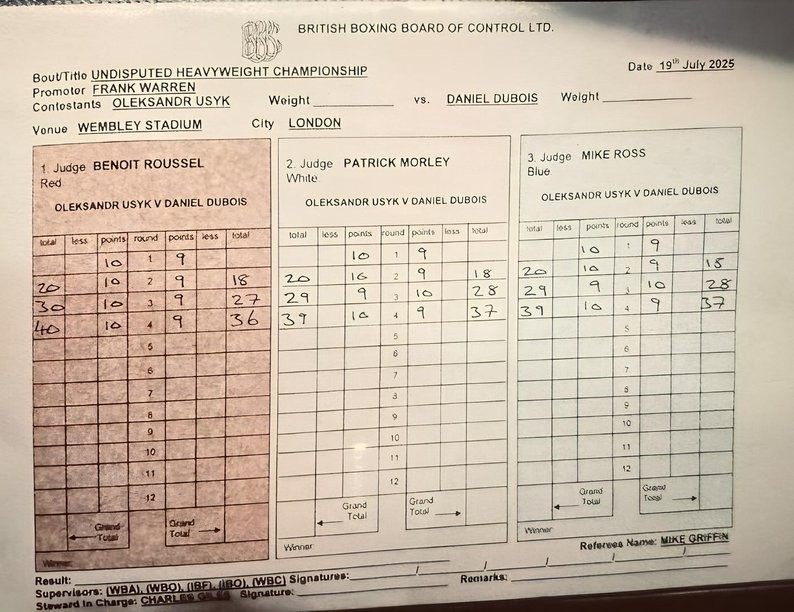 BRITISH BOXING BOARD OF CONTROL LTD.
Bout/Title UNDISPUTED HEAVYWEIGHT CHAMPIONSHIP
Date 19th July 2025
Promoter FRANK WARREN
Contestants OLEKSANDR USYK Weight vs. DANIEL DUBOIS Weight
Venue WEMBLEY STADIUM City LONDON
1. Judge BENOIT ROUSSEL
Red
OLEKSANDR USYK V DANIEL DUBOIS
total less points round points less total
10 1 9
20 10 2 9 18
30 10 3 9 27
40 10 4 9 36
5
6
7
8
9
10
11
12
Grand Total Grand Total
Winner
2. Judge PATRICK MORLEY
White
OLEKSANDR USYK V DANIEL DUBOIS
total less points round points less total
10 1 9
20 10 2 9 18
29 9 3 10 28
39 10 4 9 37
5
6
7
8
9
10
11
12
Grand Total Grand Total
Winner
3. Judge MIKE ROSS
Blue
OLEKSANDR USYK V DANIEL DUBOIS
total less points round points less total
10 1 9
20 10 2 9 18
29 9 3 10 28
39 10 4 9 37
5
6
7
8
9
10
11
12
Grand Total Grand Total
Winner
Referees Name: MIKE GRIFFIN
Result:
Supervisors: (WBA), (WBO), (IBF), (IBO), (WBC) Signatures: / / / /
Remarks:
Steward in Charge: CHARLES GILES Signature: